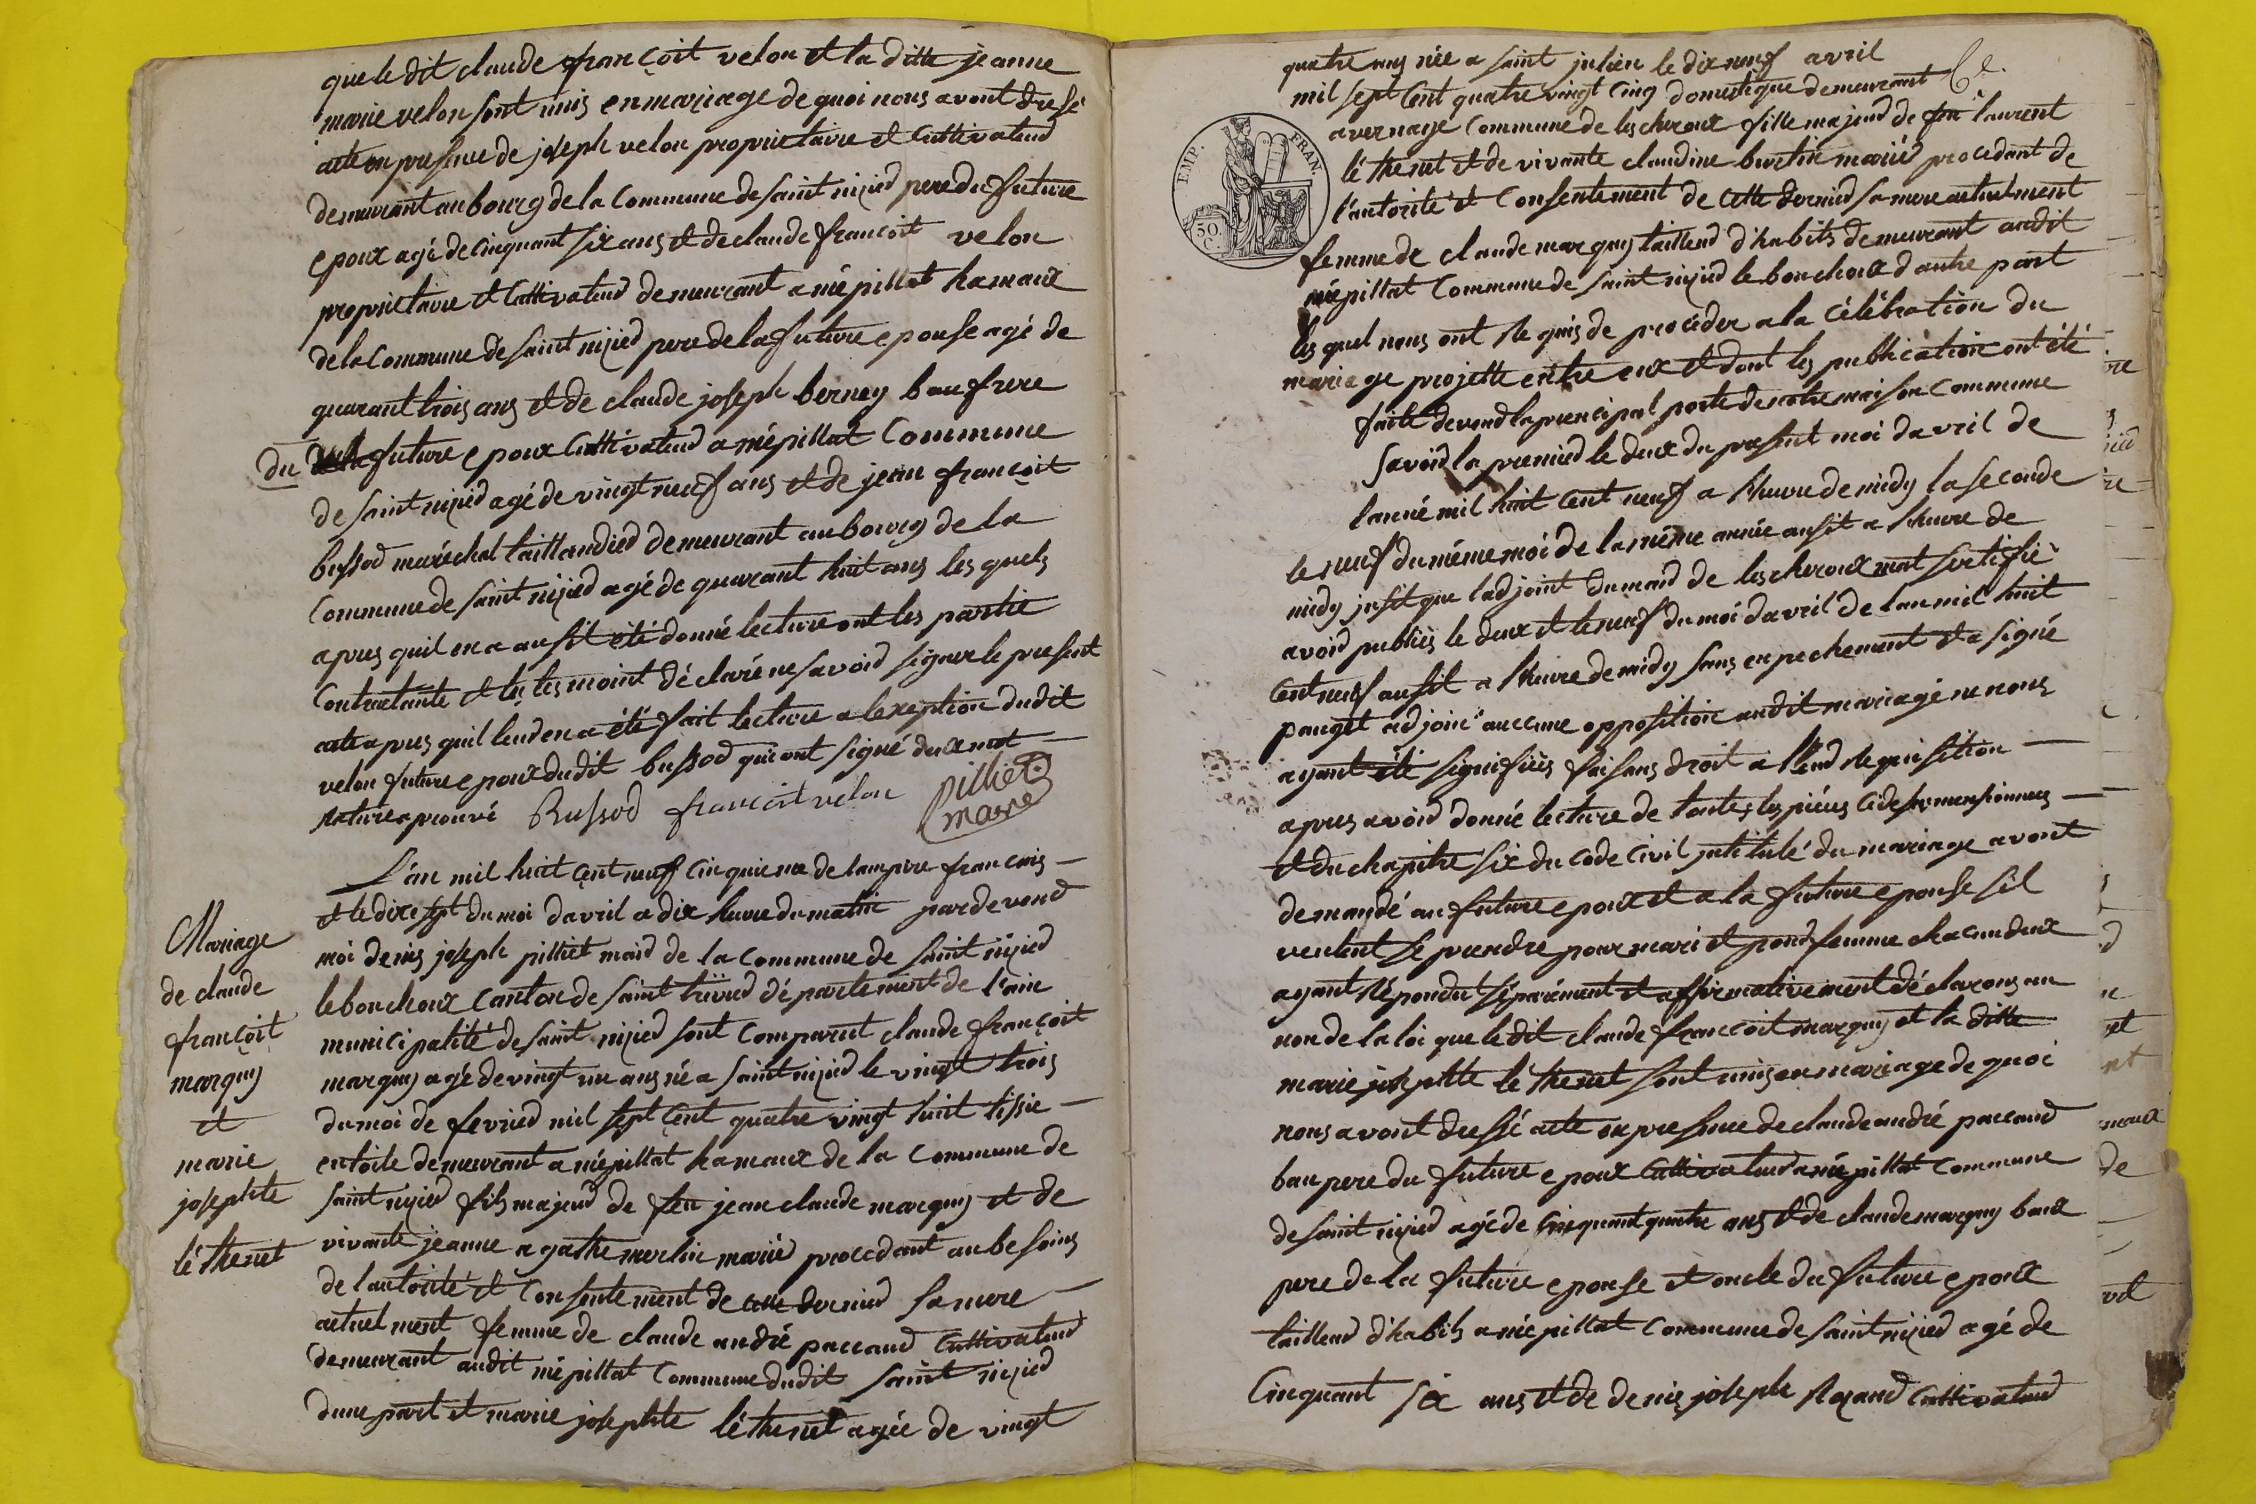 que le dit claude françoit velon et la ditte jeanne
marie velon sont unis en mariage de quoi nous avont dresé
acte en presence de joseph velon proprietaire et cultivateur
demeurant au bourg de la commune de saint nizied pere du future
epoux agé de cinquant six ans et de claude françoit velon
proprietaire et cultivateur demeurant a mépillat hamaux
de la commune de saint nizied pere de la future epouse agé de
quarant trois ans et de claude joseph berney baufrere
du future epoux cultivateur a mépillat commune
de saint nizied agé de vingt neuf ans et de jean françoit
bussod maréchal taillandied demeurant au bourg de la
commune de saint nizied agé de quarant huit ans les quels
apres quil en a ausit été donné lecture ont les partie
contractante et les tesmoint déclaré ne savoir signer le present
acte apres quil leud en a été fait lecture a lexeption dudit
velon future epoux dudit bussod qui ont signé deux mot
rature aprouvé Bussod françoit velon pilliet
maire
L'an mil huit cent neuf cinquieme de lempire francais
et le dixe sept du moi davril a dix heure du matin pardevend
moi denis joseph pilliet maid de la commune de saint nizied
le bouchoux canton de saint trivied département de l'ain
municipalité de saint nizied sont comparut claude françoit
marquy agé de vingt un ans né a saint nizied le vingt trois
du moi de fevried mil sept cent quatre vingt huit tissie
en toile demeurant a mépillat hamaux de la commune de
saint nizied fils majeud de feu jean claude marquy et de
vivante jeanne agathe merlin mariée procedant au besoins
de l'autorité et consentement de cette dernied sa mere
actuelment femme de claude andré paccaud cultivateud
demeurant audit mépillat commune dudit saint nizied
dune part et marie josephte léthenet agée de vingt
Mariage
de claude
françoit
marquy
et
marie
josephte
léthenet
quatre ans née a saint julien le dix neuf avril
mil sept cent quatre vingt cinq domestique demeurant
a vernaye commune de lescheroux fille majeud de feu laurent
léthenet et de vivante claudine burtin mariée procedant de
l'autorité et consentement de cette dernied sa mere actuelment
femme de claude marquy tailleud d'habits demeurant audit
mépillat commune de saint nizied le bouchoux d'autre part
EMP. FRAN.
50. C.
les quel nous ont requis de proceder a la célébration du
mariage projette entre eux et dont les publication ont été
faite devend la principal porte de notre maison commune
savoir la premied le deux du present moi davril de
lanné mil huit cent neuf a lheure de midy la seconde
le neuf du même moi de la même année ausit a lheure de
midy insit que ladjoint du maid de lescheroux mat sertifié
avoid publiés le deux et le neuf du moi davril de lan mil huit
cent neuf ausit a lheure de midy sans enpechement et a signé
pauget adjoin aucune opposition audit mariage ne nous
ayant été signifiés faisans droit a leud requisition
apres avoid donné lecture de toutes les piéces cidesu mensionnees
et du chapitre six du code civil intitulé du mariage avont
demandé au future epoux et a la future epouse sil
veulent se prendre pour mari et poud femme chacun deux
ayant répondut séparément et affirmativement déclarons au
non de la loi que le dit claude françoit marquy et la ditte
marie josephte léthenet sont unis en mariage de quoi
nous avont dressé acte en presence de claude andré paccaud
bau pere du future epoux cultivateud a mépillat commune
de saint nizied agé de cinquant quatre ans et de claude marquy baux
pere de la future epouse et oncle du future epoux
tailleud d'habits a mépillat commune de saint nizied agé de
cinquant six ans et de denis joseph rozand cultivateud